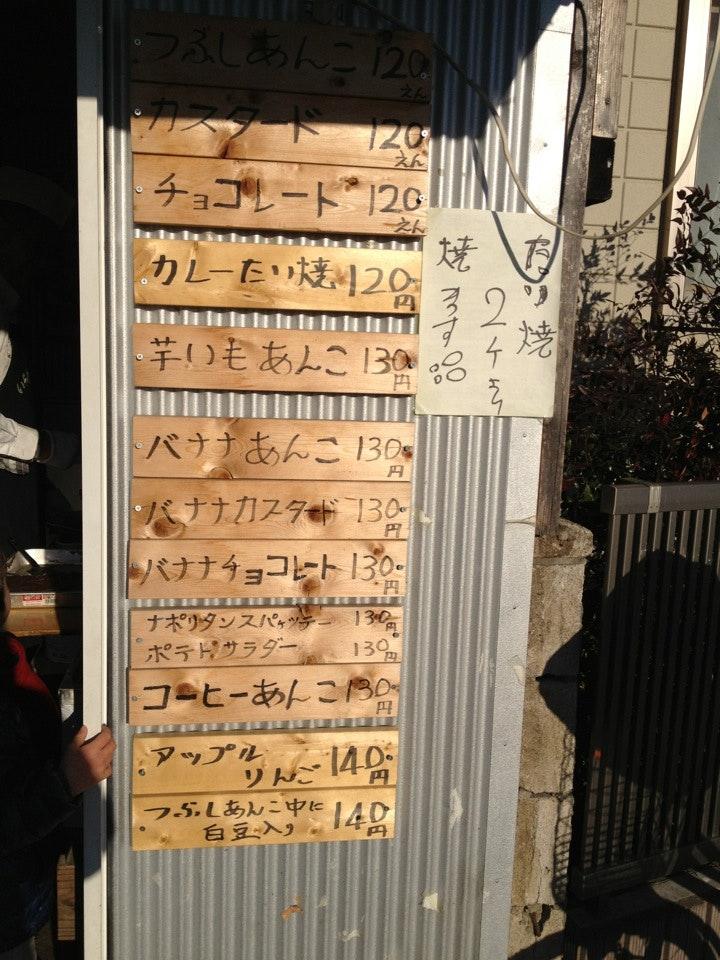 つぶしあんこ 120えん
カスタード 120えん
チョコレート 120えん
カレーたい焼 120円
芋いもあんこ 130円
バナナあんこ 130円
バナナカスタード 130円
バナナチョコレート 130円
ナポリタンスパゲッテー 130円
ポテトサラダー 130円
コーヒーあんこ 130円
アップル
りんご 140円
つぶしあんこ中に
白豆入り 140円
たい焼
2ケより
焼ます